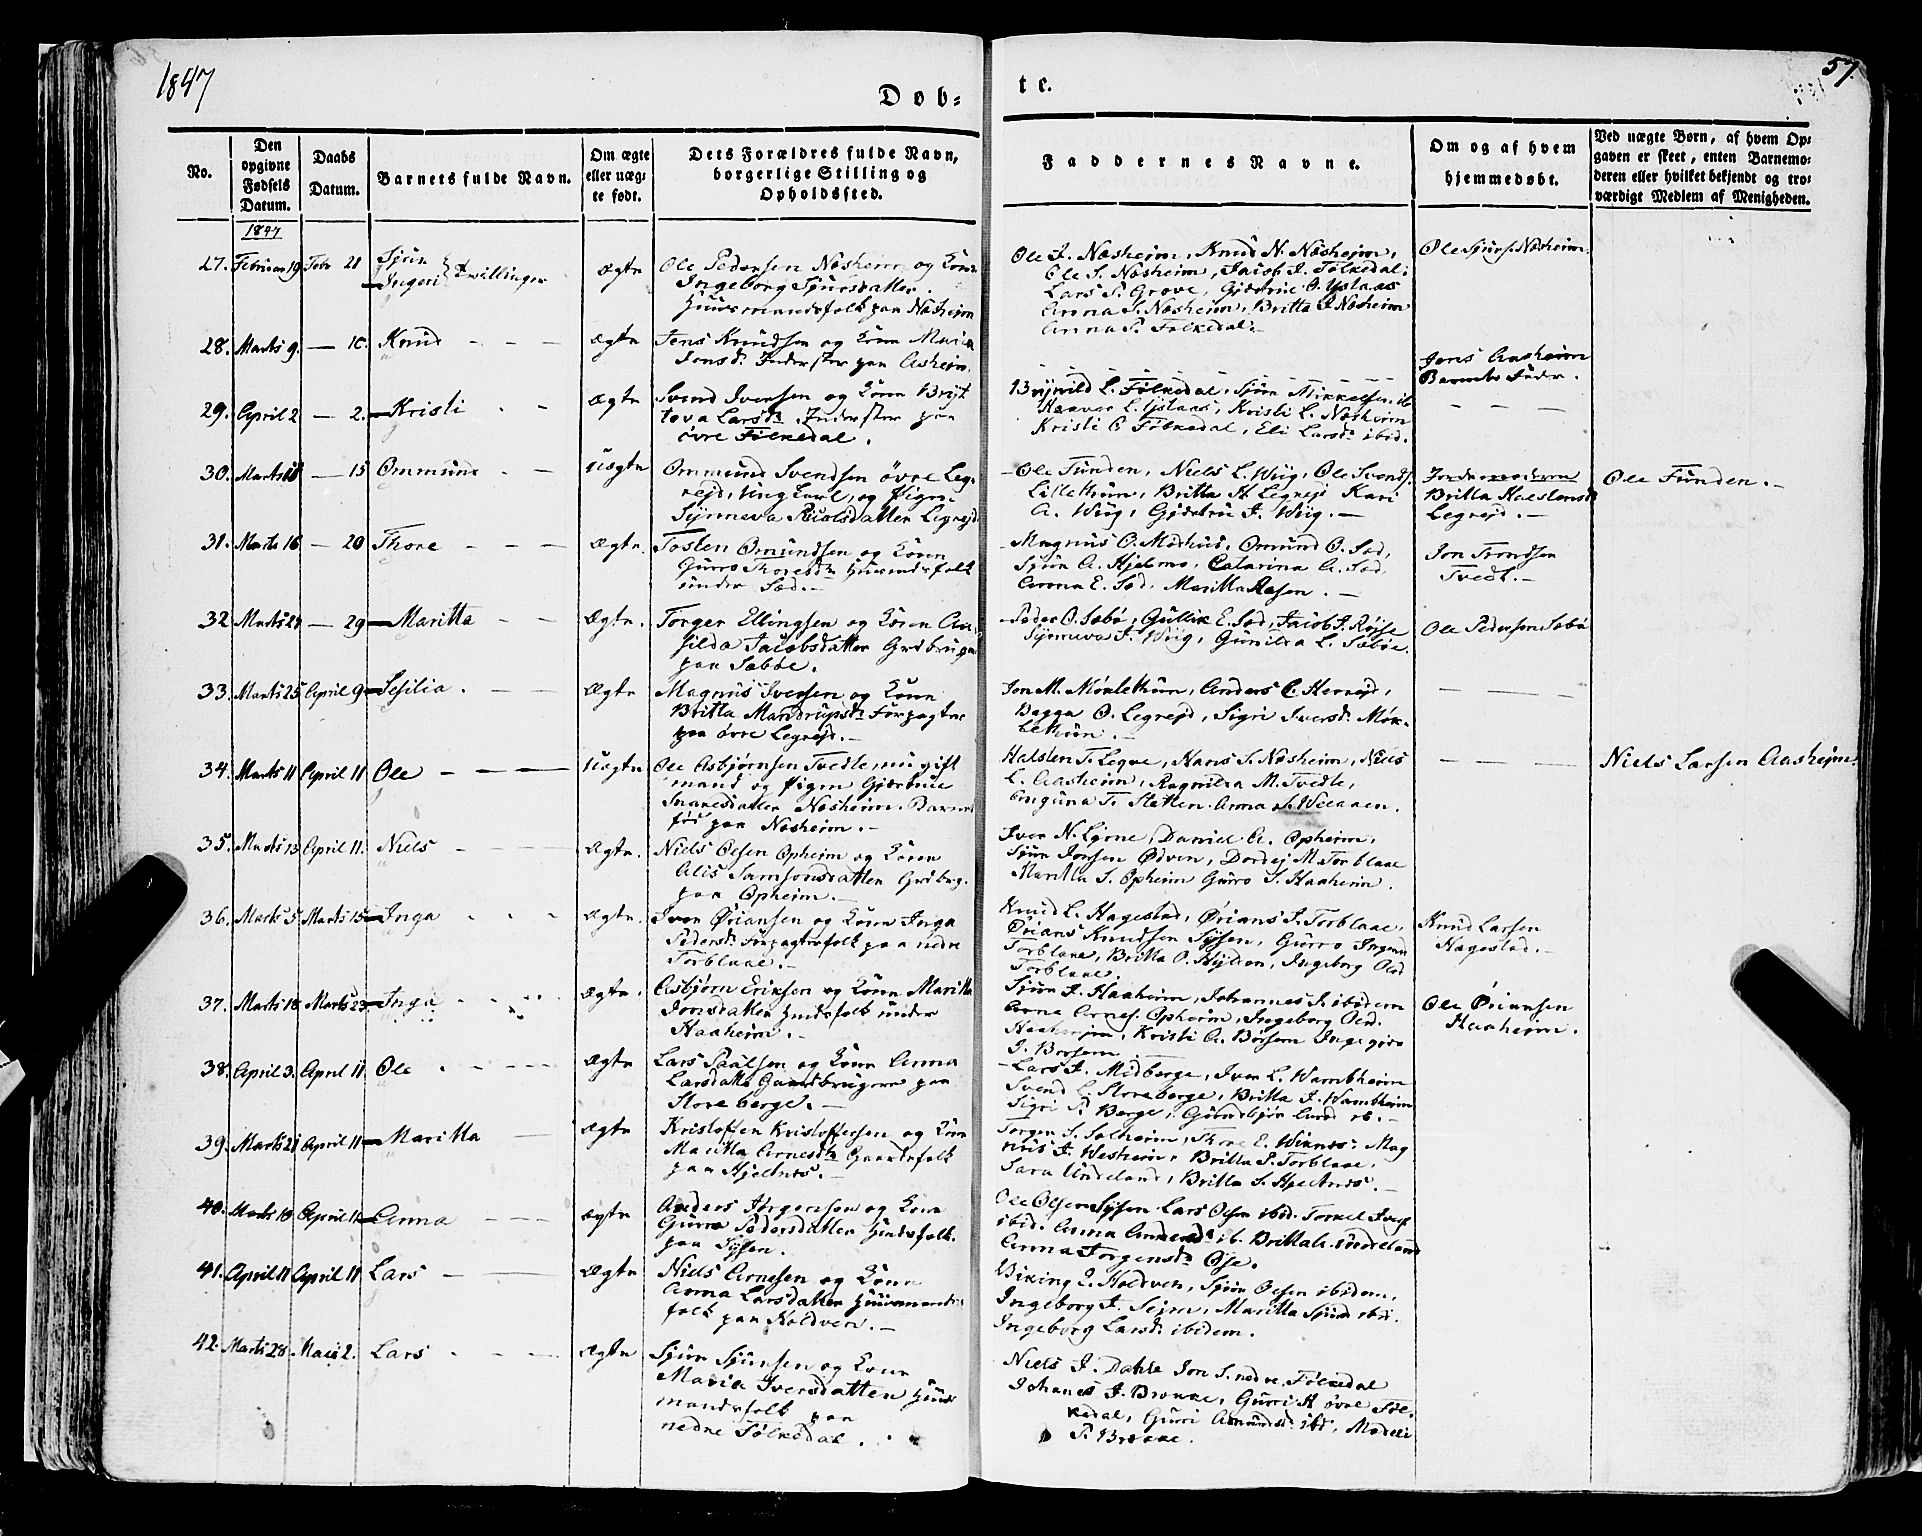 1847
57.
Døb-
te.
No.
Den opgivne Fødsels Datum.
Daabs Datum.
Barnets fulde Navn.
Om ægte eller uægte født.
Dets Forældres fulde Navn, borgerlige Stilling og Opholdssted.
Faddernes Navne.
Om og af hvem hjemmedøbt.
Ved uægte Børn, af hvem Opgaven er skeet, enten Barnemoderen eller hvilket bekjendt og troværdigt Medlem af Menigheden.
1847
27. Februar 19 Febr 21 Sjur
Ingeri Tvillinger
Ægte
Ole Pedersen Næsheim og Kone
Ingeborg Sjursdatter.
Huusmandsfolk paa Næsheim
Ole J. Næsheim, Knud N. Næsheim,
Ole S. Næsheim, Jacob J. Folkedal,
Lars S. Grove, Gjertrue O. Ystaas
Anna S. Næsheim, Britta J. Næsheim
Anna P. Folkedal.
Ole Sjurs. Næsheim.
28. Marts 9. — 10. Knud
Ægte
Jens Knudsen og Kone Maria
Jonsd. Inderster paa Aasheim.
Jens Aasheim
Barnets Fader.
29. April 2 — 2. Kristi
Ægte
Svend Iversen og Kone Bryt
teva Larsdr. Inderster paa
øvre Folkedal.
Brynild L. Folkedal, Sjur Mikkelsen ib
Haavar L. Ystaas, Kristi L. Næsheim
Kristi O Folkedal, Eli Larsdr ibid.
30. Marts — 15 Ommund
Uægte
Ommund Svendsen øvre Leg-
rejd, Ung Karl, og Pigen
Synneva Nielsdatter Legrejd
Ole Tunden, Niels L. Wiig, Ole Svends.
Lillethun, Britta H Legrejd Kari
A. Wiig, Gjertru J. Wiig.
Jordemoderen
Britta Halstensd
Legrejd.
Ole Tunden.
31. Marts 16 — 20 Thore
Ægte
Tosten Omundsen og Kone
Gurro Thoresdr Huusmdsfolk
under Sæd.
Magnus O. Medhus, Omund O. Sæd,
Sjur A. Hjelmo, Catarina A. Sæd,
Anna E. Sæd, Maritta Aasen.
Jon Trondsen
Tvedt.
32 Marts 24 — 29 Maritta
Ægte.
Torger Ellingsen og Kone An-
silda Jacobsdatter Grdbruger
paa Sæbøe.
Peder O. Sæbø, Gullik E. Sæd, Jacob J. Røjse
Synneva J. Wiig, Gunilda L. Sæbøe.
Ole Pedersen Sæbø
33. Marts 25 April 9 Sesilia.
Ægte
Magnus Iversen og Kone
Britta Mandrupsdr Forpagter
paa øvre Legrejd.
Jon M. Mørlethun, Anders C. Herrejd,
Bagga O. Legrejd, Sigri Iversdr. Mør-
lethun.
34. Marts 11 April 11 Ole
Uægte
Ole Asbjørnsen Tvedte, nu gift
mand og Pigen Gjertrue
Snaresdatter Næsheim. Barnet
fød paa Næsheim.
Halsten T. Legve, Hans S. Næsheim, Niels
L. Aasheim, Ragnilda M. Tvedte,
Anguna T. Sletten Anna S. Wiaaen.
Niels Larsen Aasheim.
35. Marts 13 April 11. Niels
Ægte.
Niels Olsen Opheim og Kone
Alis Samsonsdatter Grdbrug.
paa Opheim.
Iver N. Lejrne, Daniel A. Opheim,
Sjur Jonsen Ødven, Dordej M. Torblaae
Maritta S. Opheim Gurro S. Haaheim.
36. Marts 5 Marts 15 Inga
Ægte.
Iver Ørjansen og Kone Inga
Pedersdr Forpagterfolk paa nedre
Torblaae.
Knud L. Hagestad, Ørjans J. Torblaae,
Ørjans Knudsen Sysen, Gurro
Torblaae, Britta O. Hylden, Ingeborg Olsd
Torblaae.
Knud Larsen
Hagestad.
37. Marts 18 Marts 23 Inga
Ægte.
Asbjørn Eriksen og Kone Maritta
Jonsdatter Huusfolk under
Haaheim.
Sjur J. Haaheim, Johannes J. ibidem
Arne Arnes. Opheim, Ingeborg Olsd.
Haaheim, Kristi A. Børsem
J. Børsem
Ole Ørjansen
Haaheim.
38. April 3. April 11 Ole
Ægte
Lars Paalsen og Kone Anna
Larsdatter Gaardbrugere paa
Storeberge.
Lars J. Medberge, Iver L. Wambheim
Svend L. Storeberge, Britta J. Wambheim
Sigri P. Berge, Gurnebjør ib.
39. Marts 21 April 11 Maritta
Ægte
Kristoffen Kristoffersen og Kone
Maritta Arnesdr Gaardsfolk
paa Hjeltnes.
Torger S. Solheim, Thore E. Wiknes, Mag
nus J. Westheim, Britta S. Torblaae,
Sara Undeland, Britta S. Hjeltnes.
40. Marts 18 April 11 Anna
Ægte
Anders Jørgensen og Kone
Gurro Pedersdatter Huusfolk.
paa Sysen.
Ole Olsen Sysen Lars Olsen ibid. Torkel Ivers
ibid. Anna Andersdr ib. Britta L. Undeland
Anna Jorgensdr Øse.
41. April 11 April 11 Lars
Ægte
Niels Arnesen og Kone
Anna Larsdatter Huusmands
folk paa Koldven.
Viking J. Holdven, Sjur Olsen ibidem,
Ingeborg J. Sejm, Maritta Sjursd ibid.
Ingeborg Larsd. ibidem.
42. Marts 28. Maii 2. Lars
Ægte
Sjur Sjursen og Kone
Maria Iversdatter Huus
mandsfolk paa
nedre Folkedal.
Niels J. Dahle Jon S. nedre Folkedal
Johannes J. Bronne, Gurri H øvre Fol-
kedal, Gurri Amundsdr. ibd, Madeli
P. Bronne.